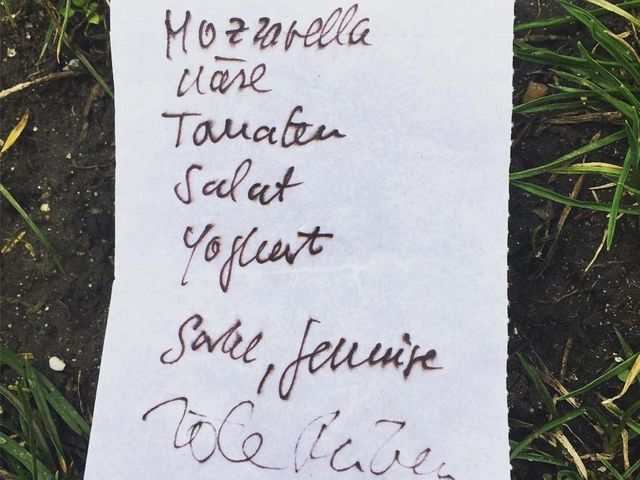 Mozzarella
Käse
Tomaten
Salat
Yoghurt
Gemüse
Rote Rüben